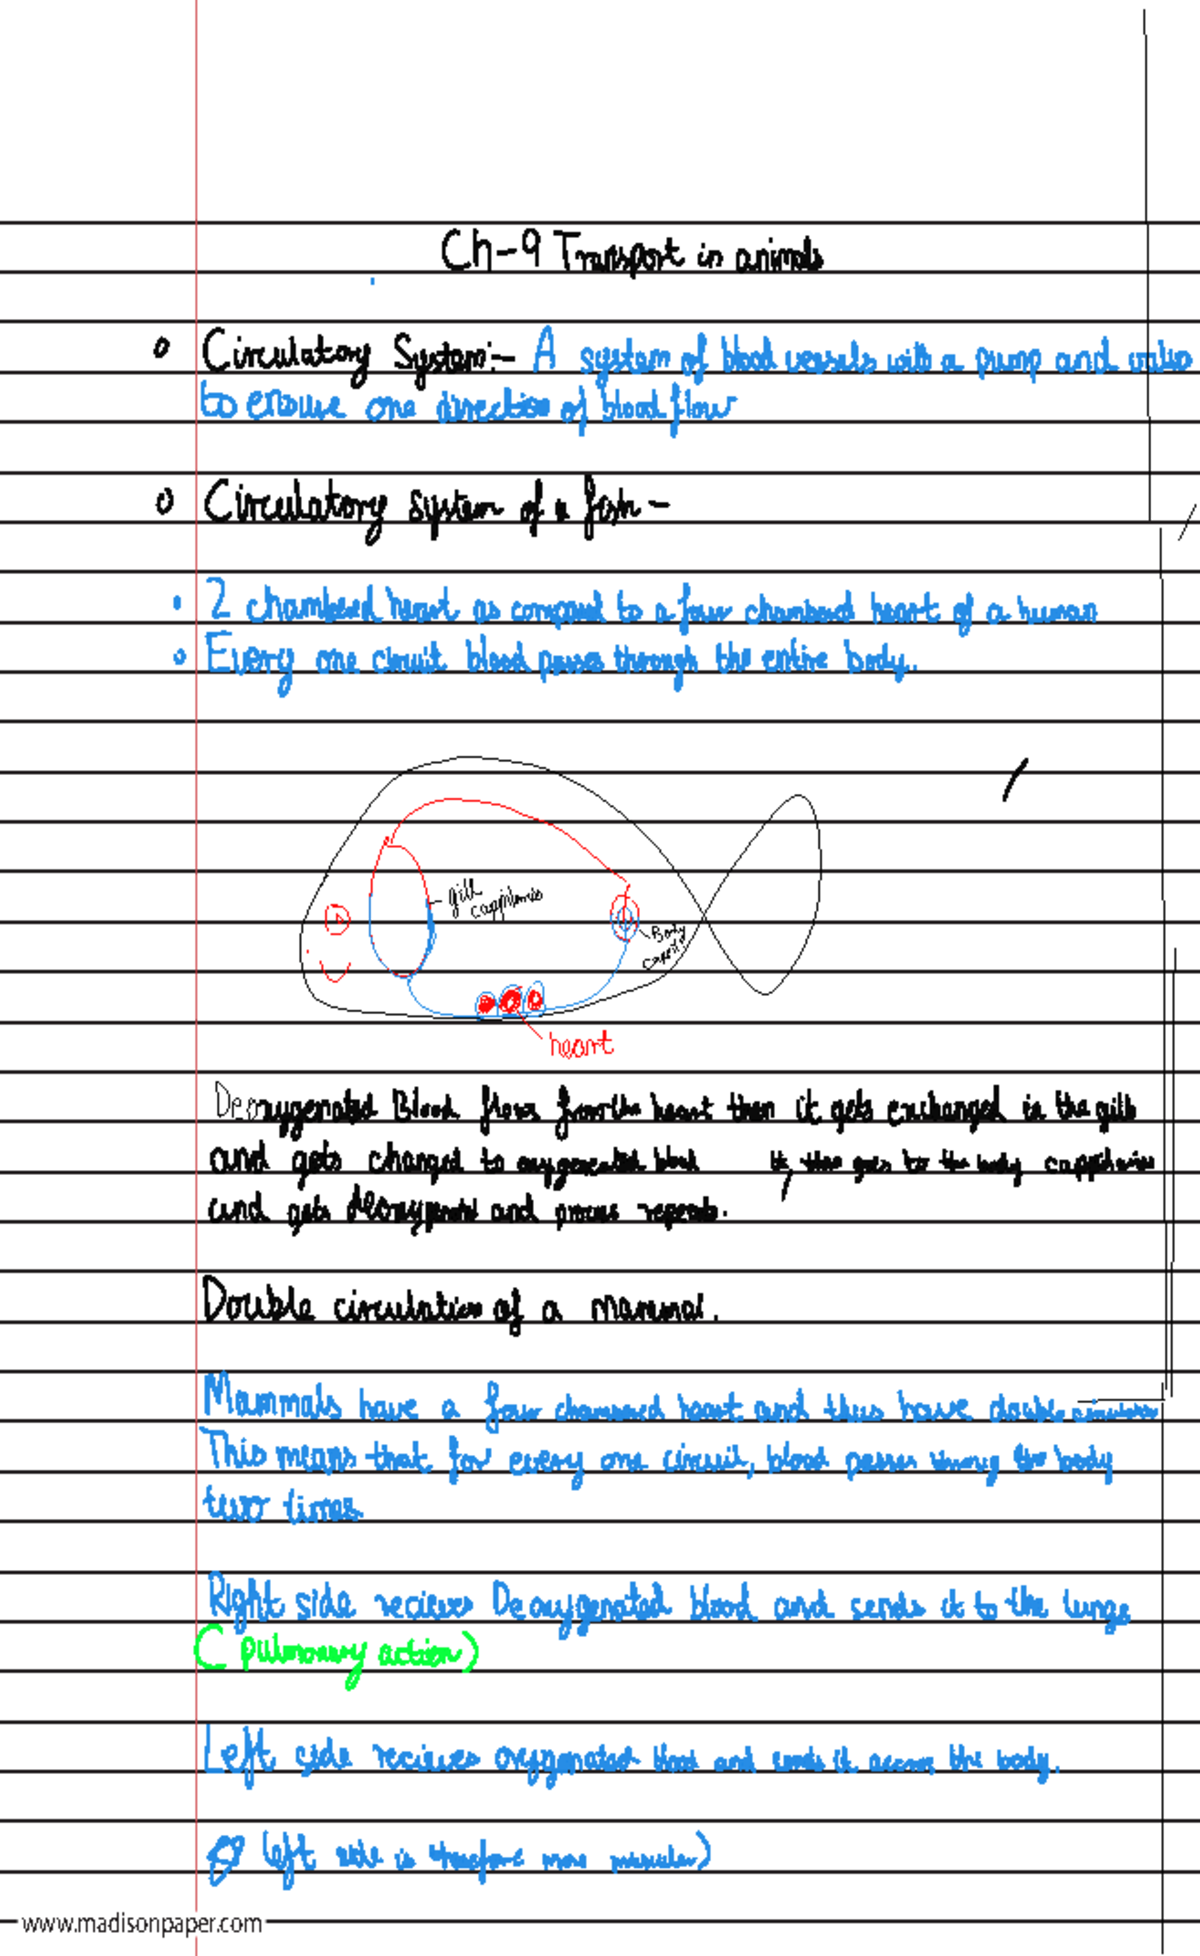 Ch-9 Transport in animals
Circulatory System:- A system of blood vessels with a pump and valves
to ensure one direction of blood flow
Circulatory system of a fish -
2 chambered heart as compared to a four chambered heart of a human
Every one circuit blood passes through the entire body.
gill
cappilaries
Body
heart
Deoxygenated Blood flows from the heart then it gets exchanged in the gills
and gets changed to oxygenated blood it, then goes to the body
and gets deoxygenated and process repeats.
Double circulation of a mammal.
Mammals have a four chambered heart and thus have double
This means that for every one circuit, blood passes through the body
two times
Right side recieves Deoxygenated blood and sends it to the lungs
(pulmonary action)
Left side recieves oxygenated blood and sends it across the body.
left side is therefore more muscular)
www.madisonpaper.com